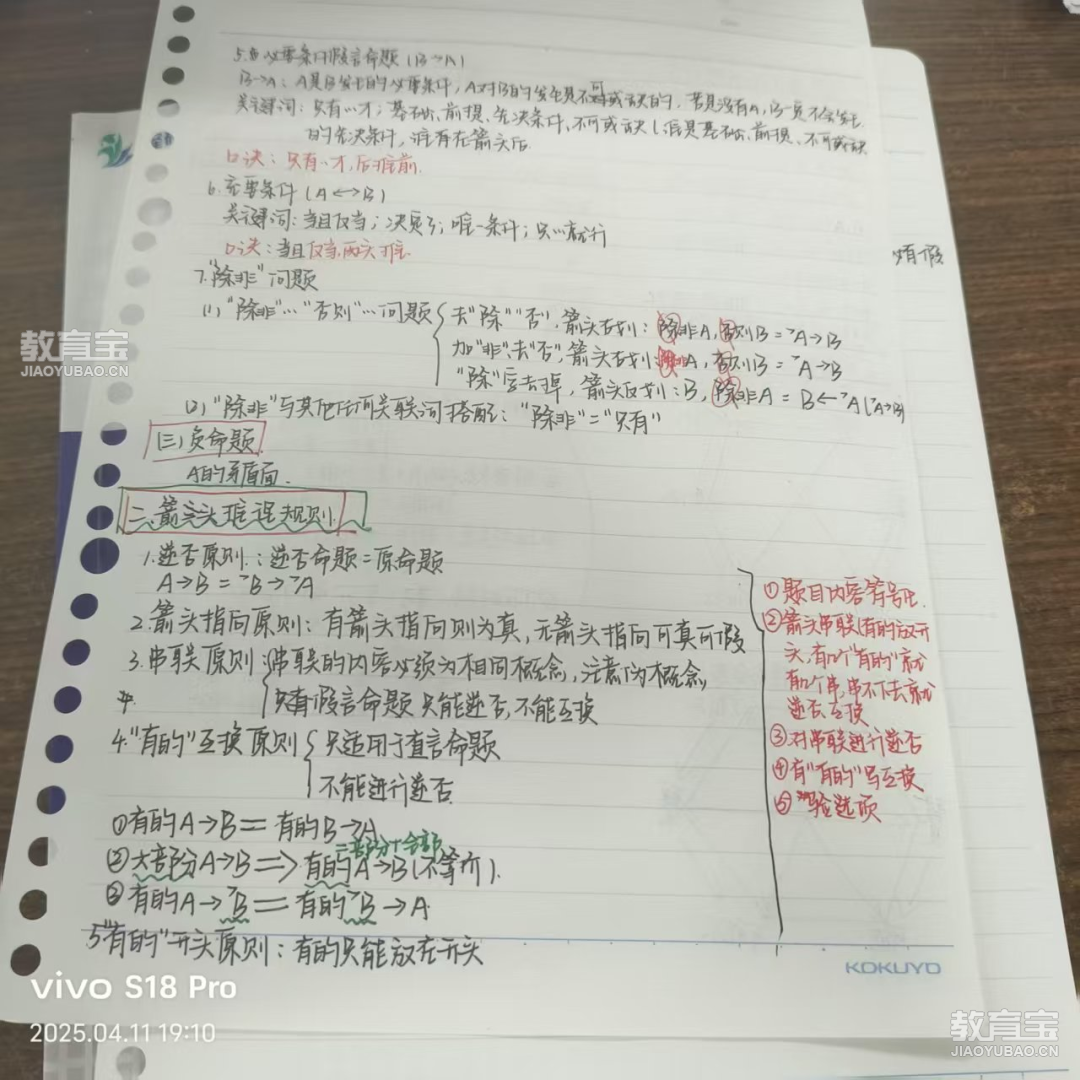 5.必要条件假言命题(B→A)
B→A：A是B发生的必要条件，A对B的发生是不可或缺的，若是没有A，B一定不会发生.
关键词：只有…才；基础、前提、先决条件、不可或缺(谁是基础、前提、不可或缺
的先决条件，谁有在箭头后.
口诀：只有…才，后推前.
6.充要条件(A↔B)
关键词：当且仅当；决定了；唯一条件；只…就行
口诀：当且仅当，两头推.
7."除非"问题
(1)"除非"…"否则"…问题
去"除""否"，箭头右划：除非A，否则B=¬A→B
加"非"、去"否"，箭头右划：除非A，否则B=¬A→B
"除"字去掉，箭头反划：B，除非A=B←¬A(¬A→B)
(2)"除非"与其他任何关联词搭配："除非"="只有"
(三)负命题
A的矛盾面.
二.箭头推理规则.
1.逆否原则：逆否命题=原命题
A→B=¬B→¬A
2.箭头指向原则：有箭头指向则为真，无箭头指向可真可假
3.串联原则
串联的内容必须为相同概念，注意伪概念
只有假言命题只能逆否，不能互换
4."有的"互换原则
只适用于直言命题
不能进行逆否
①有的A→B=有的B→A
=部分+全部
②大部分A→B=>有的A→B(不等价).
③有的A→¬B=有的¬B→A
5"有的"开头原则：有的只能放在开头
①题目内容符号化.
②箭头串联(有的放开
头，有几个"有的"就
有几个串，串不下去就
逆否、互换
③对串联进行逆否
④有"有的"写互换
⑤验选项
KOKUYO
教育宝
JIAOYUBAO.CN
vivo S18 Pro
2025.04.11 19:10
教育宝
JIAOYUBAO.CN